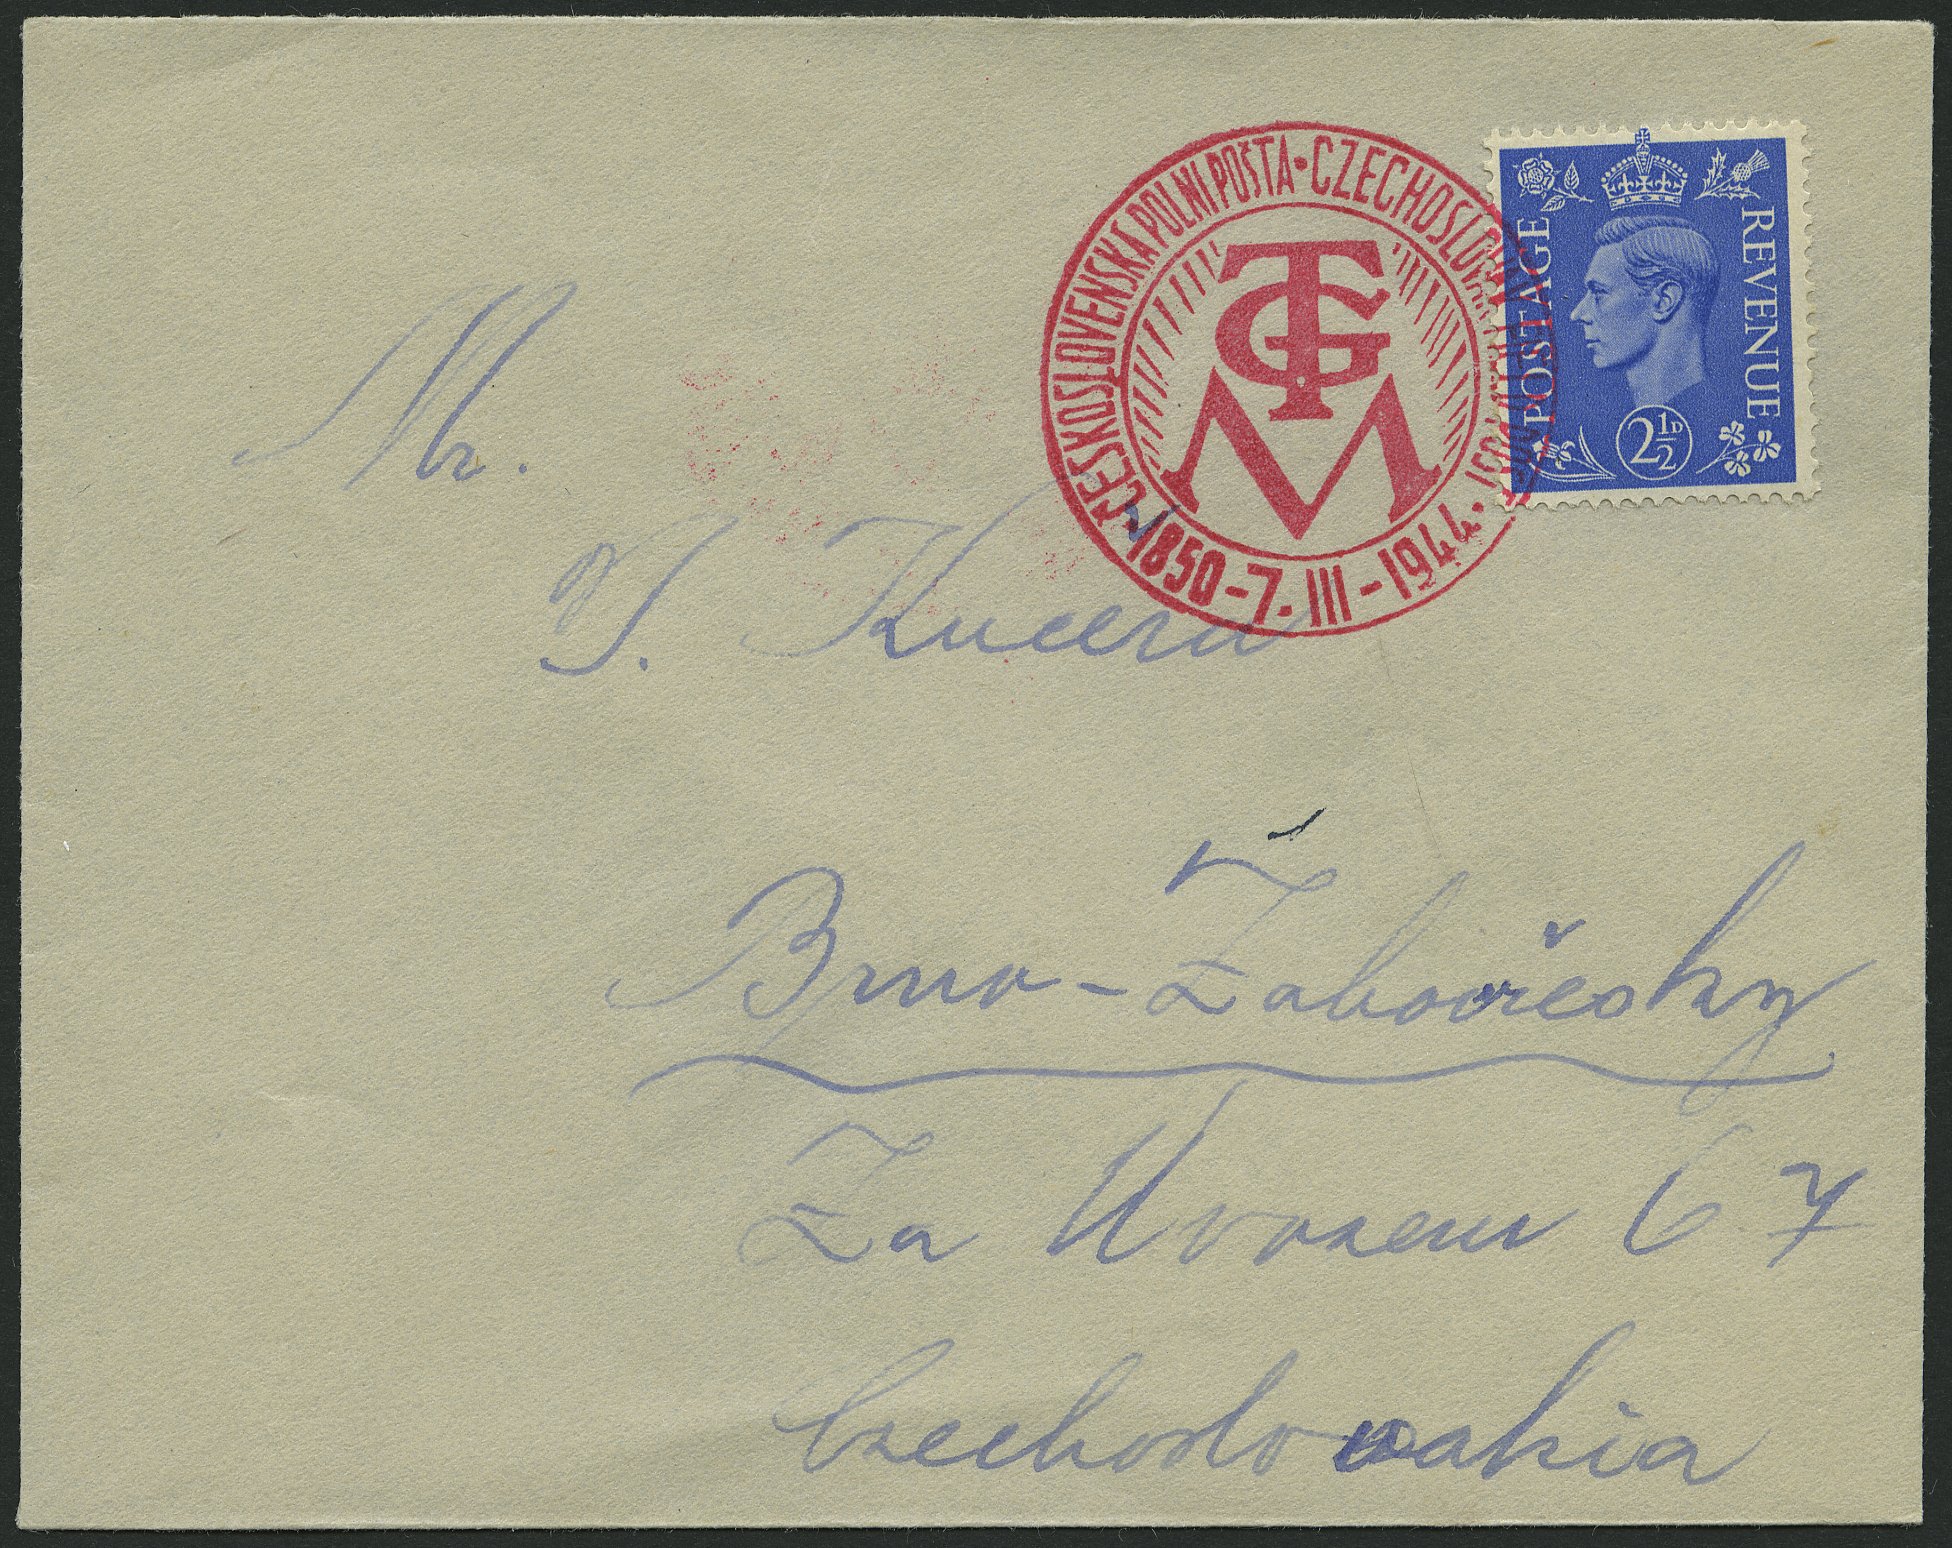 ČESKOSLOVENSKÁ POLNI POŠTA · CZECHOSLOVAK FIELD POST
TGM
· 1850 - 7. III - 1944 ·
POSTAGE
REVENUE
2½D
Mr.
J. Kucera
Brno - Žabovřesky
Za Uvozem 67
Czechoslovakia